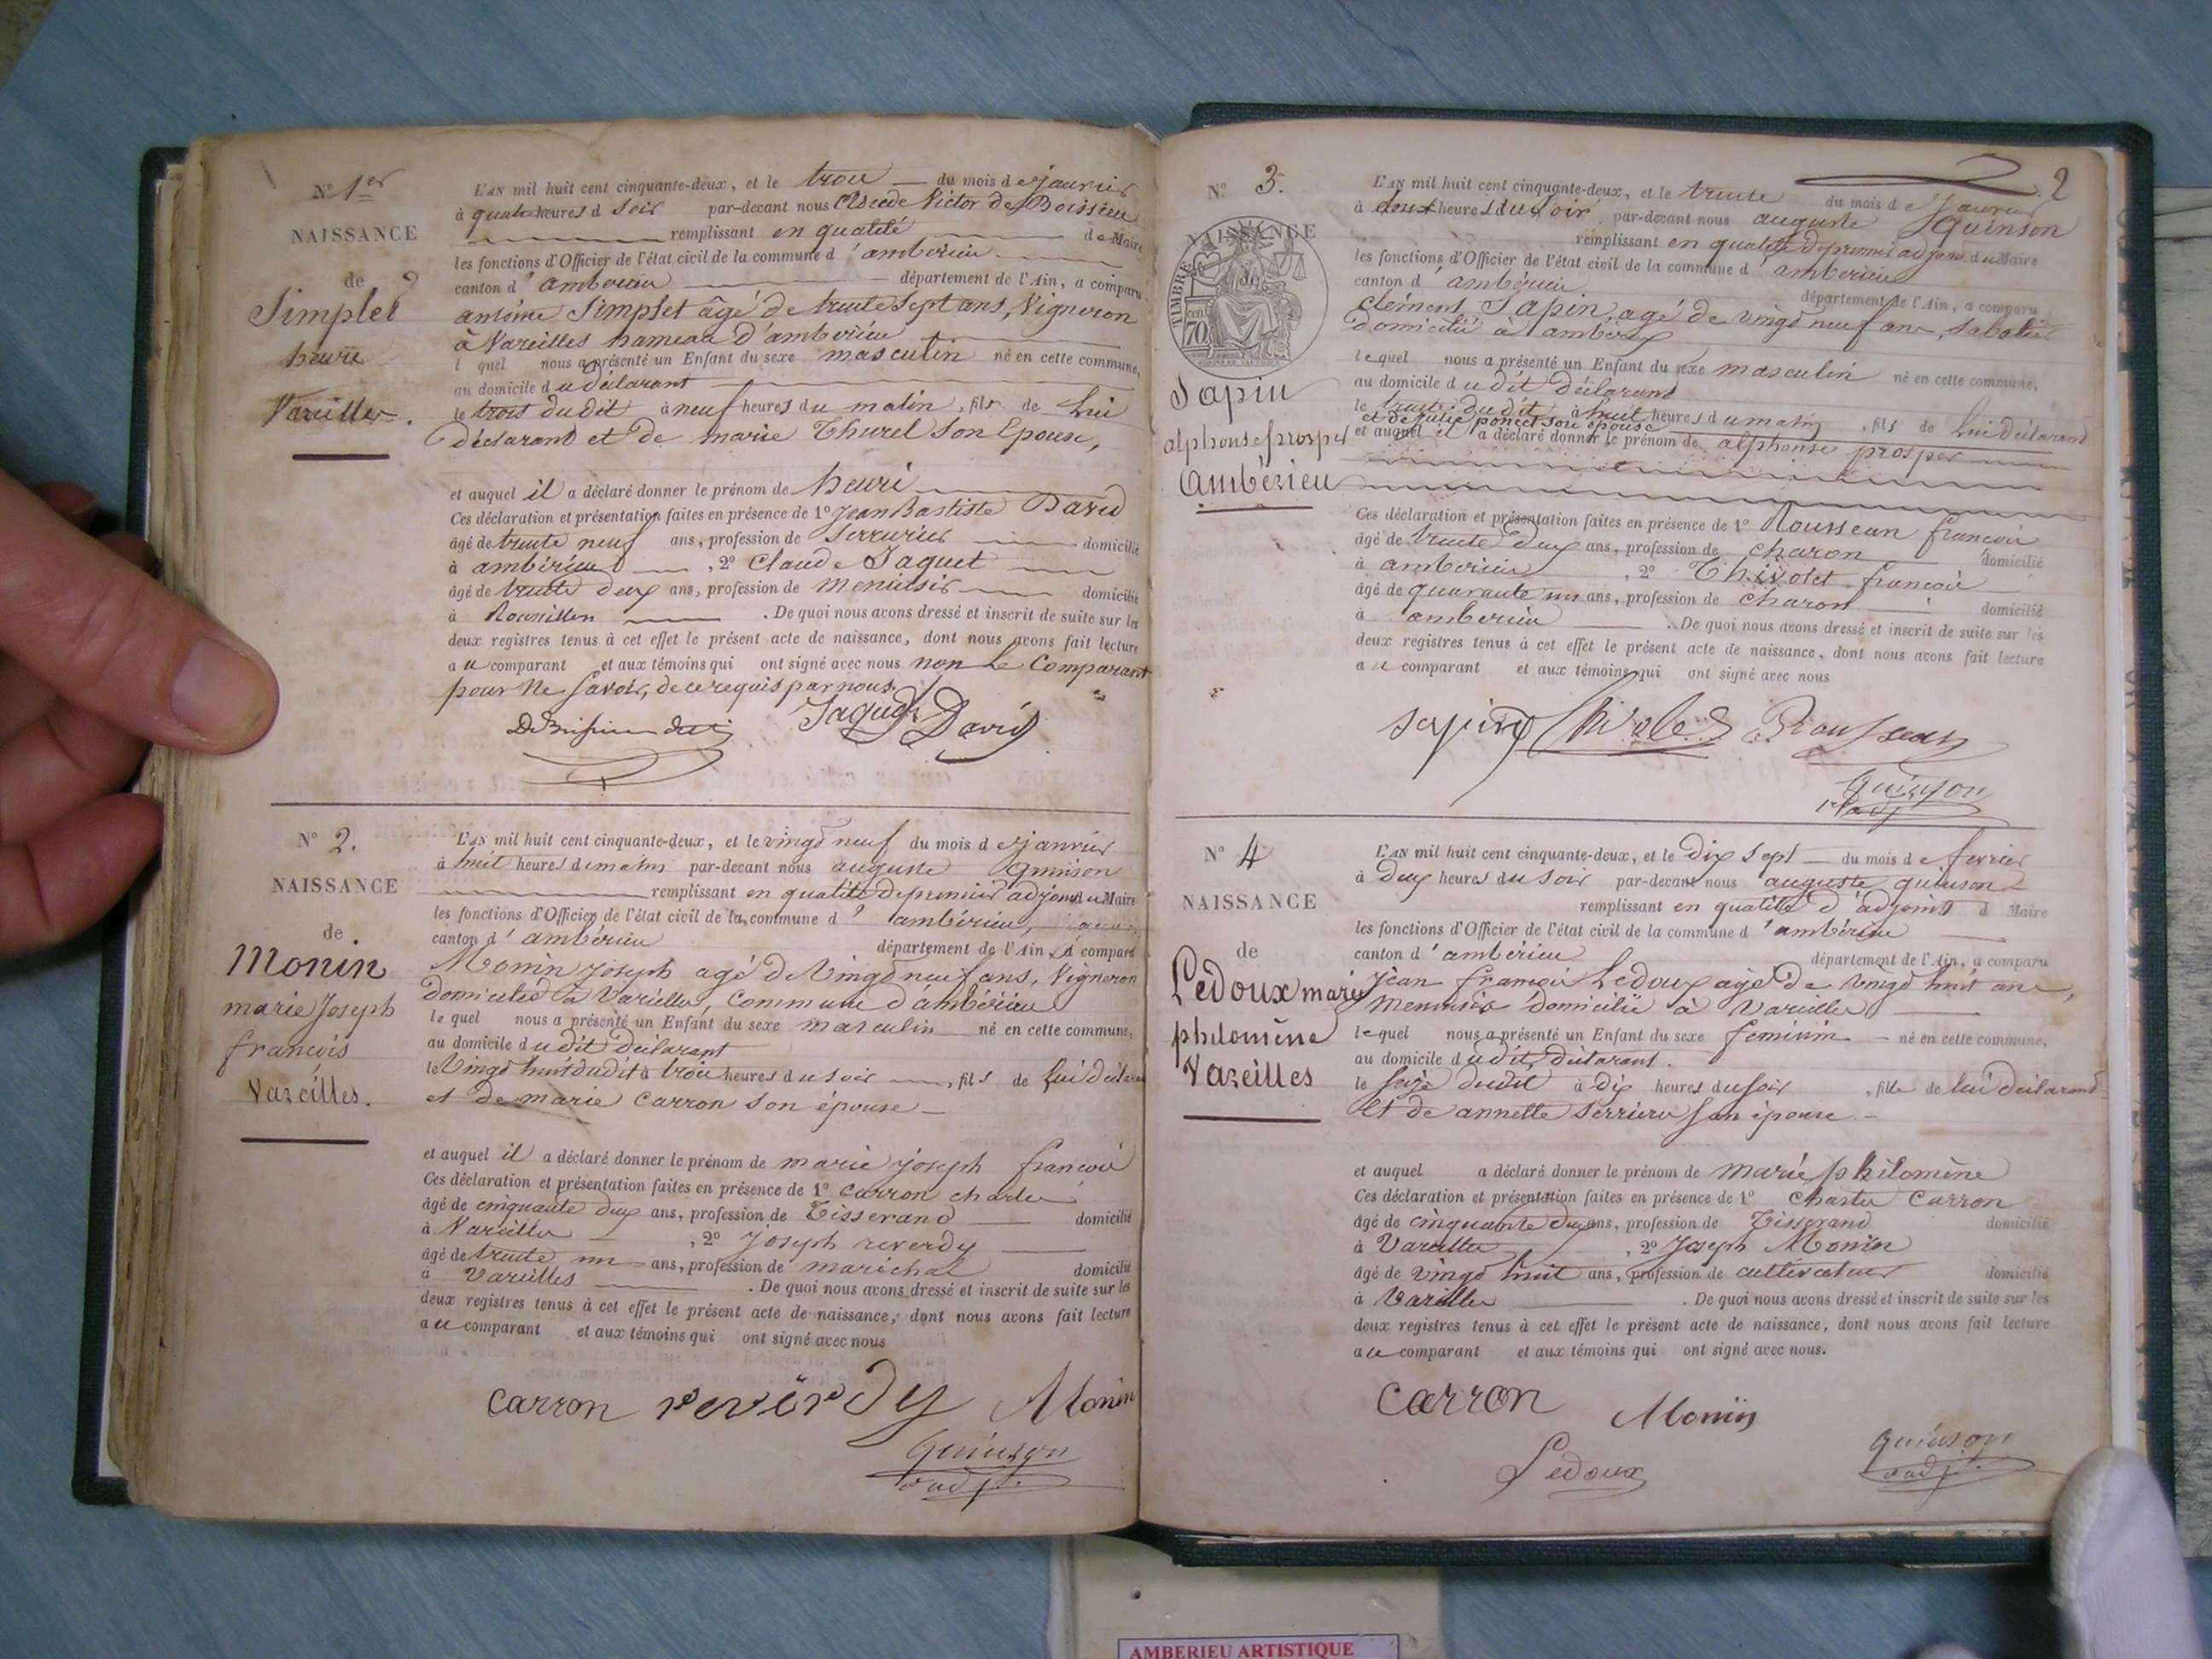 N° 1er
NAISSANCE
de
Simplet
henri
Vareilles.
L'AN mil huit cent cinquante-deux, et le trois du mois de janvier
à quatre heures d soir par-devant nous Victor de Boissieu
remplissant en qualité de Maire
les fonctions d'Officier de l'état civil de la commune d'ambérieu
canton d'ambérieu département de l'Ain, a comparu
antoine Simplet âgé de trente sept ans, Vigneron
à Vareilles hameau d'ambérieu
l quel nous a présenté un Enfant du sexe masculin né en cette commune,
au domicile du déclarant
le trois dudit à neuf heures du matin, fils de Lui
déclarant et de marie Thurel son Epouse,
et auquel il a déclaré donner le prénom de henri
Ces déclaration et présentation faites en présence de 1° Jean Bastiste David
âgé de trente neuf ans, profession de Serrurier domicilié
à ambérieu, 2° Claude Jaquet
âgé de trente deux ans, profession de menuisier domicilié
à . De quoi nous avons dressé et inscrit de suite sur les
deux registres tenus à cet effet le présent acte de naissance, dont nous avons fait lecture
au comparant et aux témoins qui ont signé avec nous non Le Comparant
pour ne savoir, de ce requis par nous.
Jaquet David
N° 2.
NAISSANCE
de
Monin
marie Joseph
françois
Vareilles.
L'AN mil huit cent cinquante-deux, et le vingt neuf du mois de janvier
à huit heures du matin par-devant nous auguste Quinson
remplissant en qualité de premier adjoint du Maire
les fonctions d'Officier de l'état civil de la commune d' ambérieu,
canton d'ambérieu département de l'Ain, a comparu
Monin joseph agé de Vingt neuf ans, Vigneron
domicilié à Vareilles, Commune d'ambérieu
le quel nous a présenté un Enfant du sexe masculin né en cette commune,
au domicile dudit déclarant
le Vingt huit dudit à trois heures du soir, fils de Lui déclarant
et de marie Carron son épouse
et auquel il a déclaré donner le prénom de marie joseph françois
Ces déclaration et présentation faites en présence de 1° Carron charles
âgé de cinquante deux ans, profession de Tisserand domicilié
à Vareilles, 2° Joseph reverdy
âgé de trente un ans, profession de maréchal domicilié
à Vareilles. De quoi nous avons dressé et inscrit de suite sur les
deux registres tenus à cet effet le présent acte de naissance, dont nous avons fait lecture
au comparant et aux témoins qui ont signé avec nous
Carron reverdy Monin
Quinson
adjt.
2
N° 3.
NAISSANCE
de
TIMBRE
70
Sapin
alphonse prosper
Ambérieu
L'AN mil huit cent cinquante-deux, et le trente du mois de Janvier
à heures du soir par-devant nous auguste Quinson
remplissant en qualité de premier adjoint du Maire
les fonctions d'Officier de l'état civil de la commune d'ambérieu
canton d'ambérieu département de l'Ain, a comparu
Clément Sapin, agé de vingt neuf ans, sabotier
domicilié à ambérieu
lequel nous a présenté un Enfant du sexe masculin né en cette commune,
au domicile dudit déclarant
le trente dudit à huit heures du matin, fils de Lui déclarant
et de julie poncet son épouse
et auquel il a déclaré donner le prénom de alphonse prosper
Ces déclaration et présentation faites en présence de 1° Rousseau francois
âgé de trente deux ans, profession de charon domicilié
à amberieu, 2° Thivolet francois
âgé de quarante un ans, profession de charon domicilié
à amberieu. De quoi nous avons dressé et inscrit de suite sur les
deux registres tenus à cet effet le présent acte de naissance, dont nous avons fait lecture
au comparant et aux témoins qui ont signé avec nous
sapin Thivolet Rousseau
Quinson
1er adj
N° 4
NAISSANCE
de
Ledoux marie
philomène
Vareilles
L'AN mil huit cent cinquante-deux, et le Dix sept du mois de fevrier
à Deux heures du soir par-devant nous auguste quinson
remplissant en qualité d'adjoint d Maire
les fonctions d'Officier de l'état civil de la commune d'ambérieu
canton d'ambérieu département de l'Ain, a comparu
Jean françois Ledoux agé de vingt huit ans,
menuisier domicilié à Vareilles
lequel nous a présenté un Enfant du sexe feminin né en cette commune,
au domicile dudit, déclarant.
le seize dudit à dix heures du soir, fille de lui déclarant
Et de annette Serriere son épouse
et auquel a déclaré donner le prénom de Marie philomène
Ces déclaration et présentation faites en présence de 1° Charles Carron
âgé de cinquante deux ans, profession de Tisserand domicilié
à Vareilles, 2° Joseph Monin
âgé de vingt huit ans, profession de cultivateur domicilié
à Vareilles. De quoi nous avons dressé et inscrit de suite sur les
deux registres tenus à cet effet le présent acte de naissance, dont nous avons fait lecture
au comparant et aux témoins qui ont signé avec nous.
Carron Monin
Ledoux
quinson
adjt.
AMBERIEU ARTISTIQUE